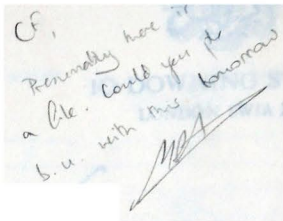 CF,
Presumably there is
a file. Could you pl
b.u. with this tomorrow